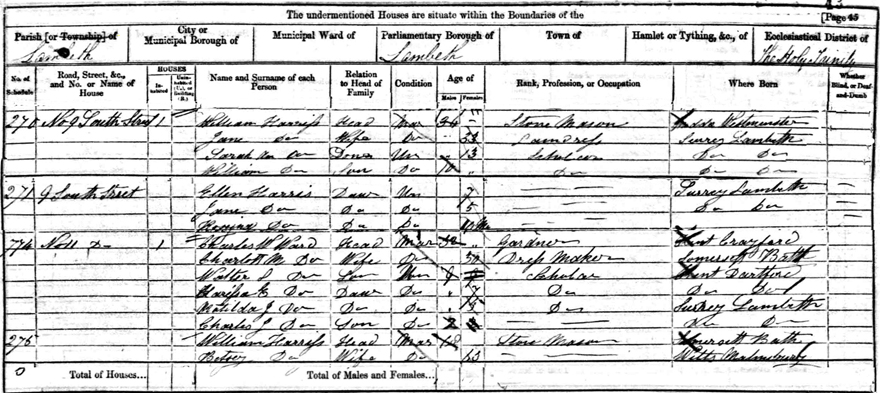 [Page 45
The undermentioned Houses are situate within the Boundaries of the
Parish [or Township] of City or Municipal Borough of Municipal Ward of Parliamentary Borough of Town of Hamlet or Tything, &c., of Ecclesiastical District of
Lambeth Lambeth The Holy Trinity
No. of Schedule Road, Street, &c., and No. or Name of House HOUSES Inhabited Uninhabited (U.), or Building (B.) Name and Surname of each Person Relation to Head of Family Condition Age of Males Females Rank, Profession, or Occupation Where Born Whether Blind, or Deaf-and-Dumb
270 No 9 South Street 1 William Harriss Head Mar Stone Mason Westminster
Jane Do Wife Do Laundress Surrey Lambeth
Sarah Do Un 13 Scholar Do Do
William Do Son Do Do Do Do
271 9 South Street Ellen Harris Daur Un 7 Surrey Lambeth
Jane Do Do Do 5 Do Do
Do Do Do
No 11 Do 1 Charles W Ward Head Mar Gardner Kent Crayford
Charlott M Do Wife Do Dress Maker Somerset Bath
Walter S Do Son Un Scholar Kent Dartford
E Do Daur Do Do Do Do
Matilda J Do Do Do Do Surrey Lambeth
Charles J Do Son Do 2 Do Do
275 William Harriss Head Mar Stone Mason Somersett Bath
Betsey Do Wife Do 63 Wilts Malmsbury
0 Total of Houses... Total of Males and Females...